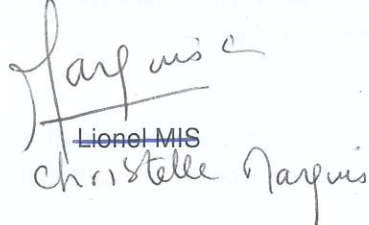 Marquis c
Lionel MIS
christelle Marquis